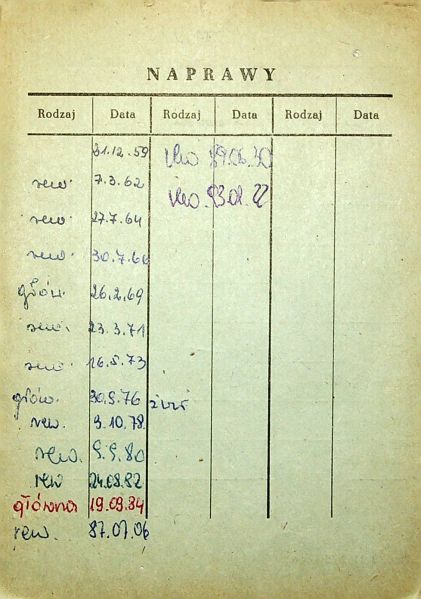 NAPRAWY
Rodzaj Data Rodzaj Data Rodzaj Data
31.12.59
rew. 7.3.62
rew. 27.7.64
rew. 30.7.66
głów. 26.2.69
rew. 23.3.71
rew. 16.5.73
głów. 30.9.76
rew. 9.10.78
rew. 9.9.80
rew 24.08.82
główna 19.09.84
rew. 87.07.06
rew
rew.